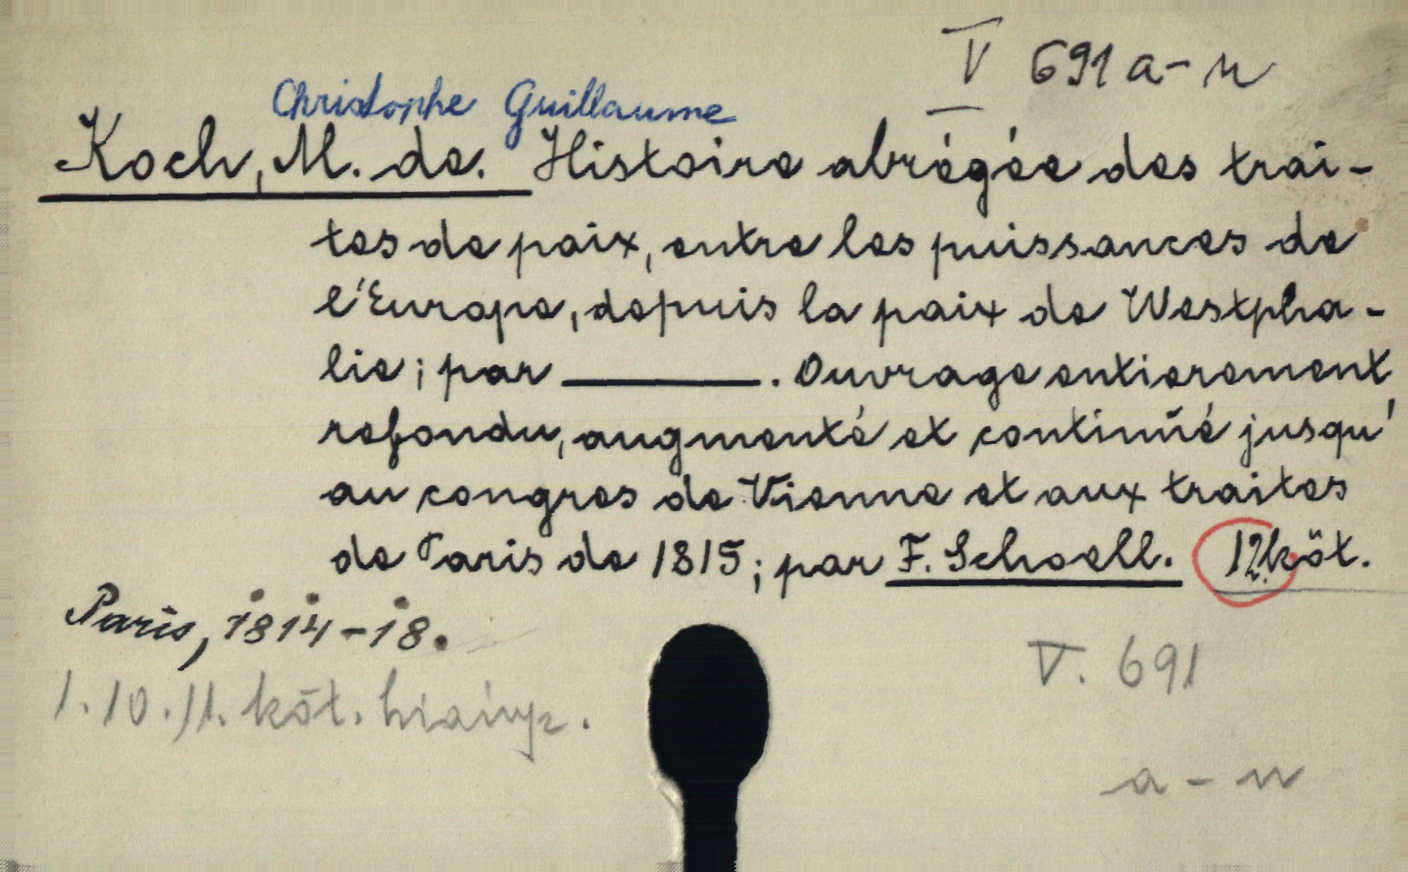 V 691 a-n
Christophe Guillaume
Koch, M. de. Histoire abrégée des trai-
tes de paix, entre les puissances de
l'Europe, depuis la paix de Westpha-
lie; par ———. Ouvrage entierement
refondu, augmenté et continué jusqu'
au congres de Vienne et aux traites
de Paris de 1815; par F. Schoell. 12 köt.
Paris, 1814-18.
1.10.11. köt. hiányz.
V. 691
a-n